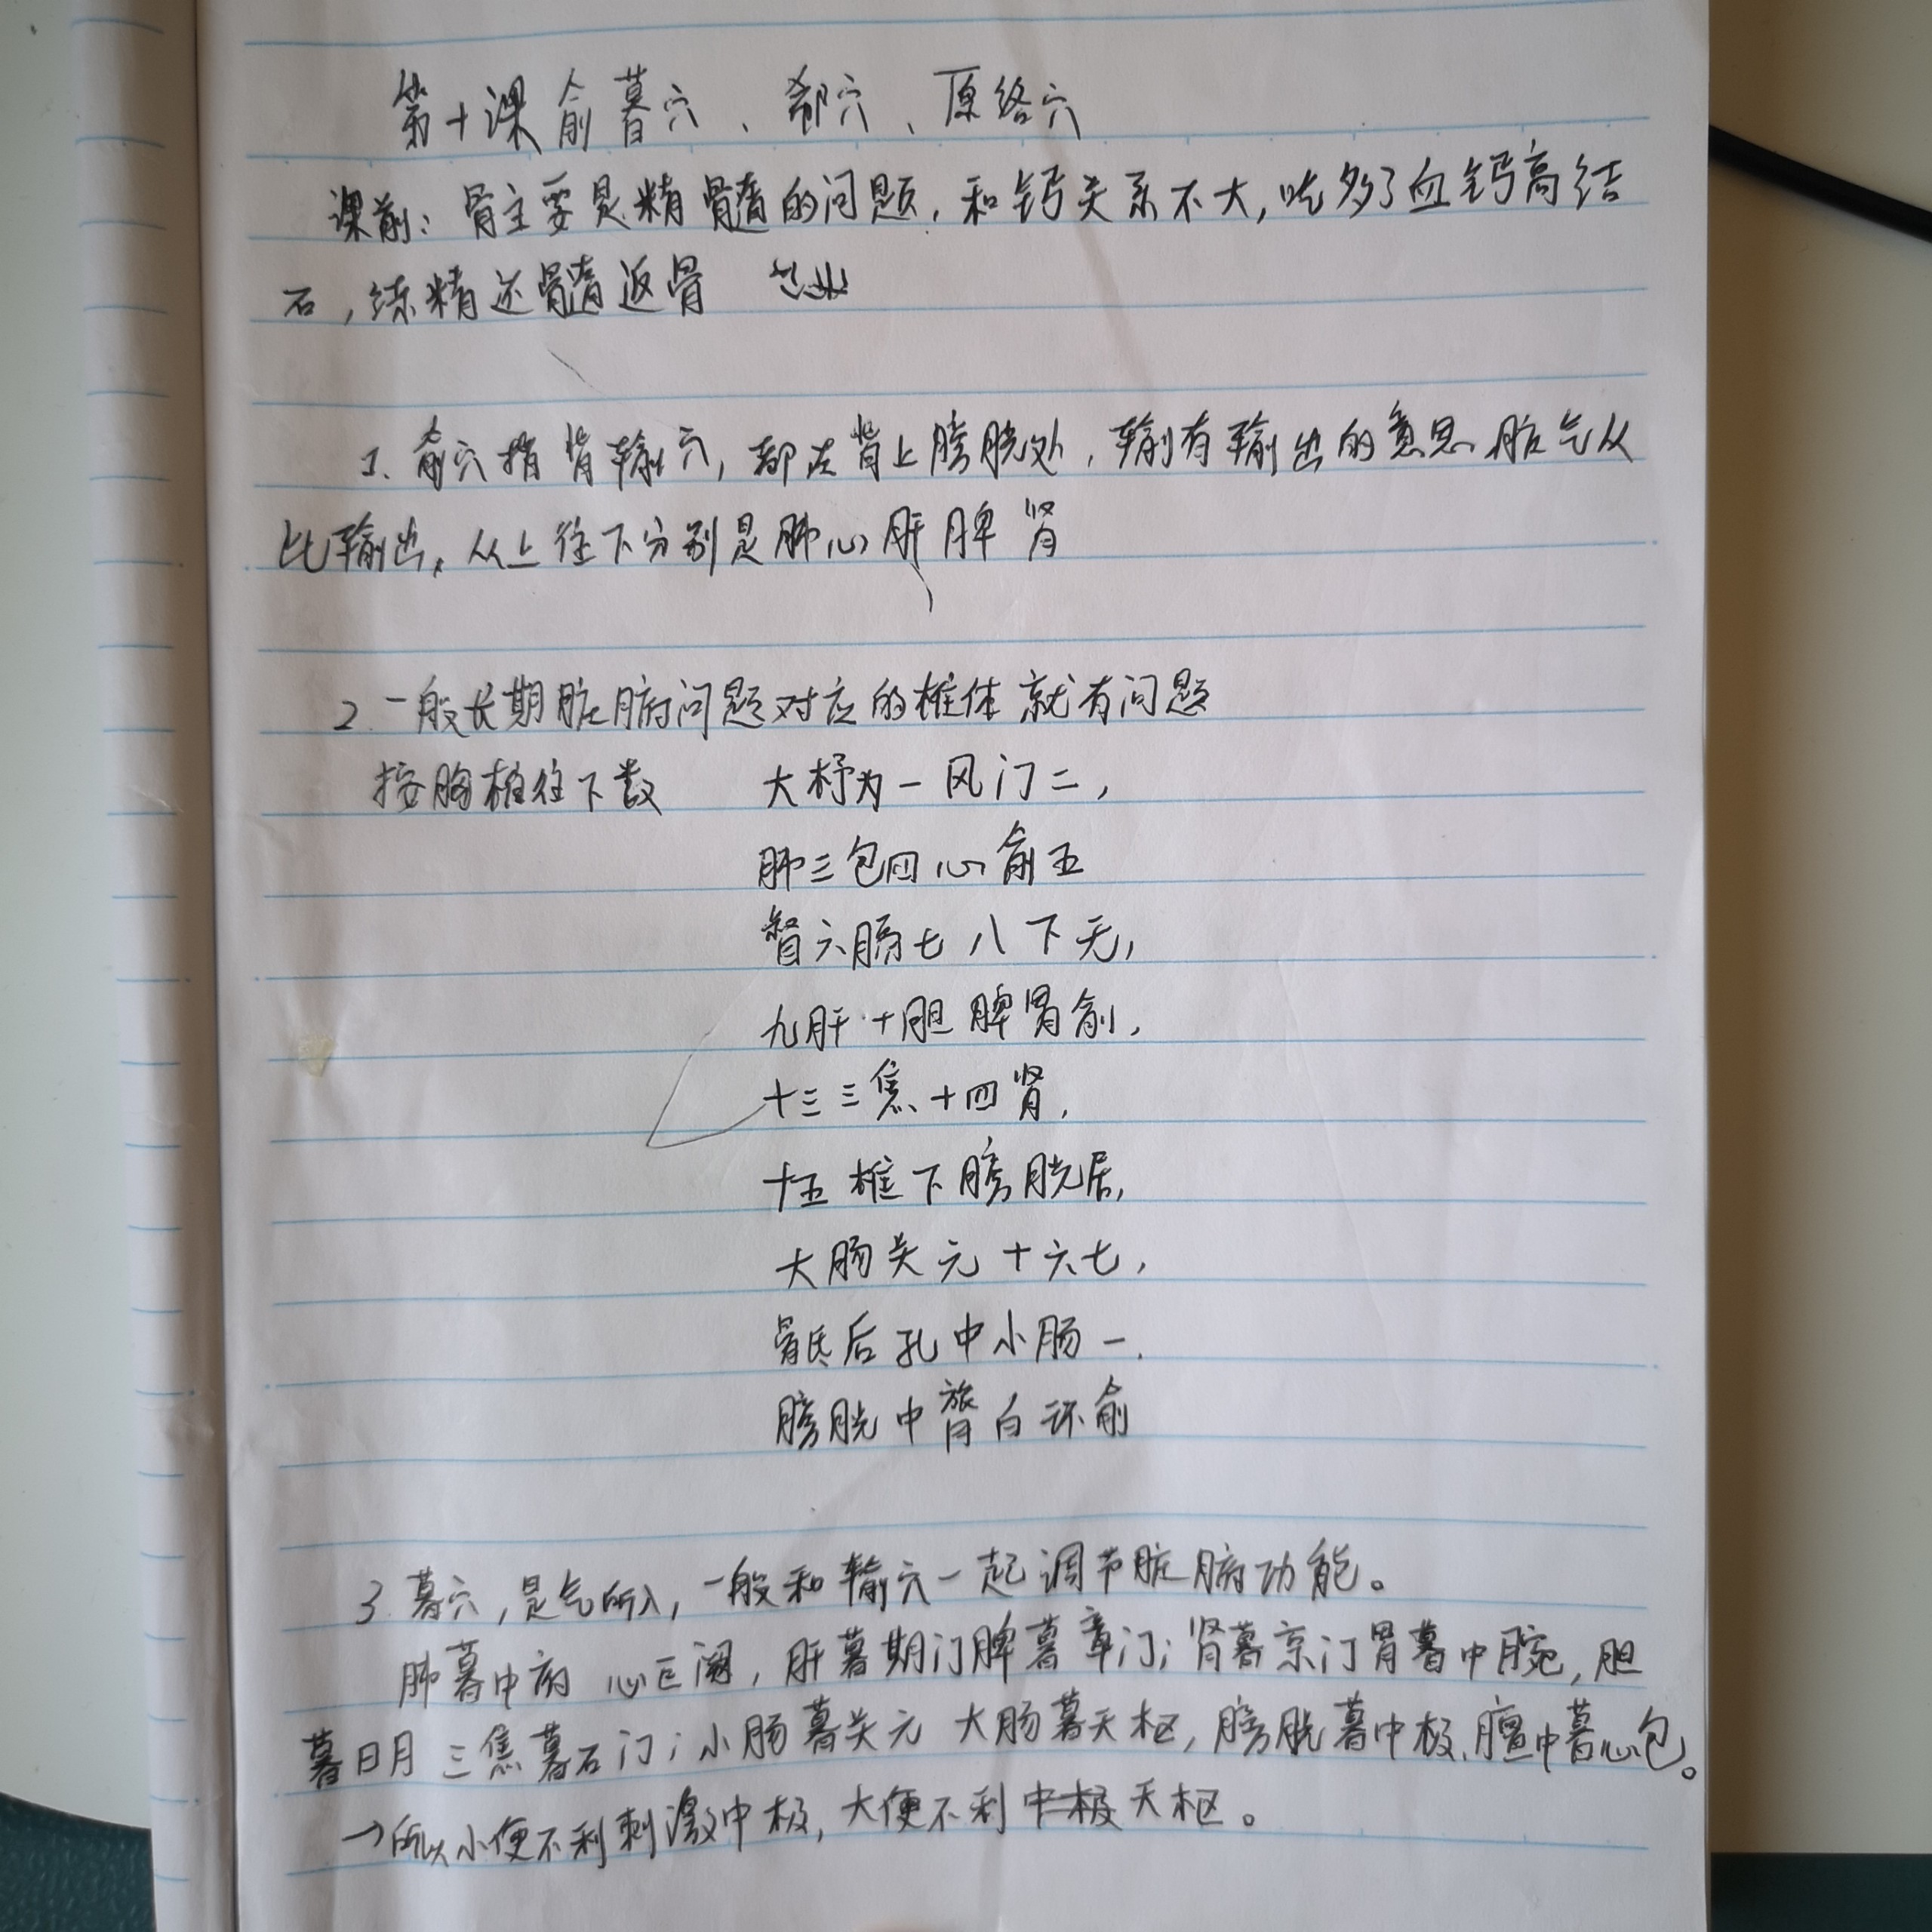 第十课 俞暮穴、郄穴、原络穴
课前：骨主要是精髓的问题，和钙关系不大，吃多了血钙高结
石，练精还髓返骨
1. 俞穴指背输穴，都在背上膀胱处，输有输出的意思 脏气从
比输出，从上往下分别是肺心肝脾肾
2. 一般长期脏腑问题对应的椎体就有问题
按胸椎往下数 大杼为一风门二，
肺三包四心俞五
督六膈七八下无，
九肝十胆脾胃俞，
十三三焦十四肾，
十五椎下膀胱居，
大肠关元十六七，
骶后孔中小肠一.
膀胱中膂白环俞
3. 暮穴，是气所入，一般和输穴一起调节脏腑功能。
肺暮中府 心巨阙，肝暮期门脾暮章门；肾暮京门胃暮中腕，胆
暮日月 三焦暮石门；小肠暮关元 大肠暮天枢，膀胱暮中极、膻中暮心包。
→所以小便不利刺激中极，大便不利中极天枢。